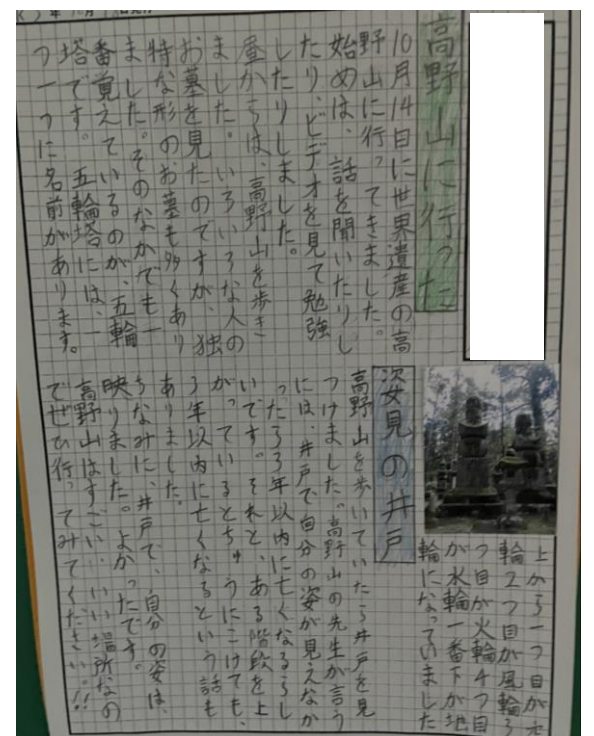 高野山に行った
10月14日に世界遺産の高
野山に行ってきました。
始めは、話を聞いたりし
たり、ビデオを見て勉強
したりしました。
昼からは、高野山を歩き
ました。いろいろな人の
お墓を見たのですが、独
特な形のお墓も多くあり
ました。そのなかでも一
番覚えているのが、五輪
塔です。五輪塔には、一
つ一つに名前があります。
上から一つ目が
輪2つ目が風輪3
つ目が火輪4つ目
が水輪一番下が地
輪になっていました
姿見の井戸
高野山を歩いていたら井戸を見
つけました。高野山の先生が言う
には、井戸で自分の姿が見えなか
ったら3年以内に亡くなるらし
いです。それと、ある階段を上
がっているとちゅうにこけても、
3年以内に亡くなるという話も
ありました。
ちなみに、井戸で、自分の姿は、
映りました。よかったです。
高野山はすごい、いい場所なの
でぜひ行ってみてください!!